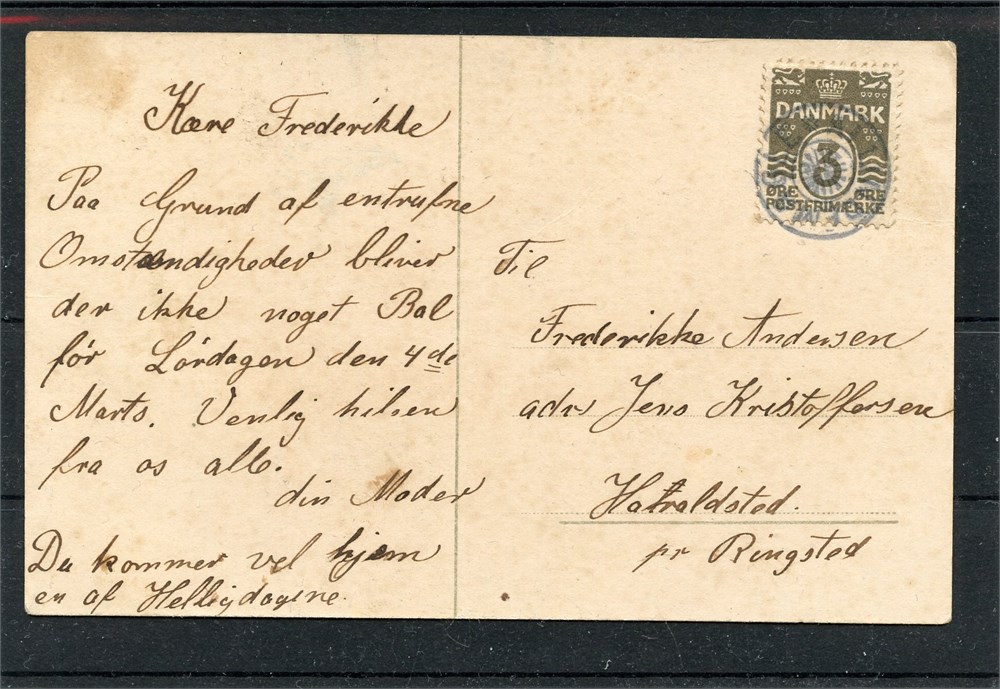 Kære Frederikke
Paa Grund af entrufne
Omstændigheder bliver
der ikke noget Bal
før Lørdagen den 4de
Marts. Venlig hilsen
fra os alle.
din Moder
Du kommer vel hjem
en af Helligdagene.
DANMARK
3
ØRE ØRE
POSTFRIMÆRKE
Til
Frederikke Andersen
adr Jens Kristoffersen
Haraldsted.
pr Ringsted